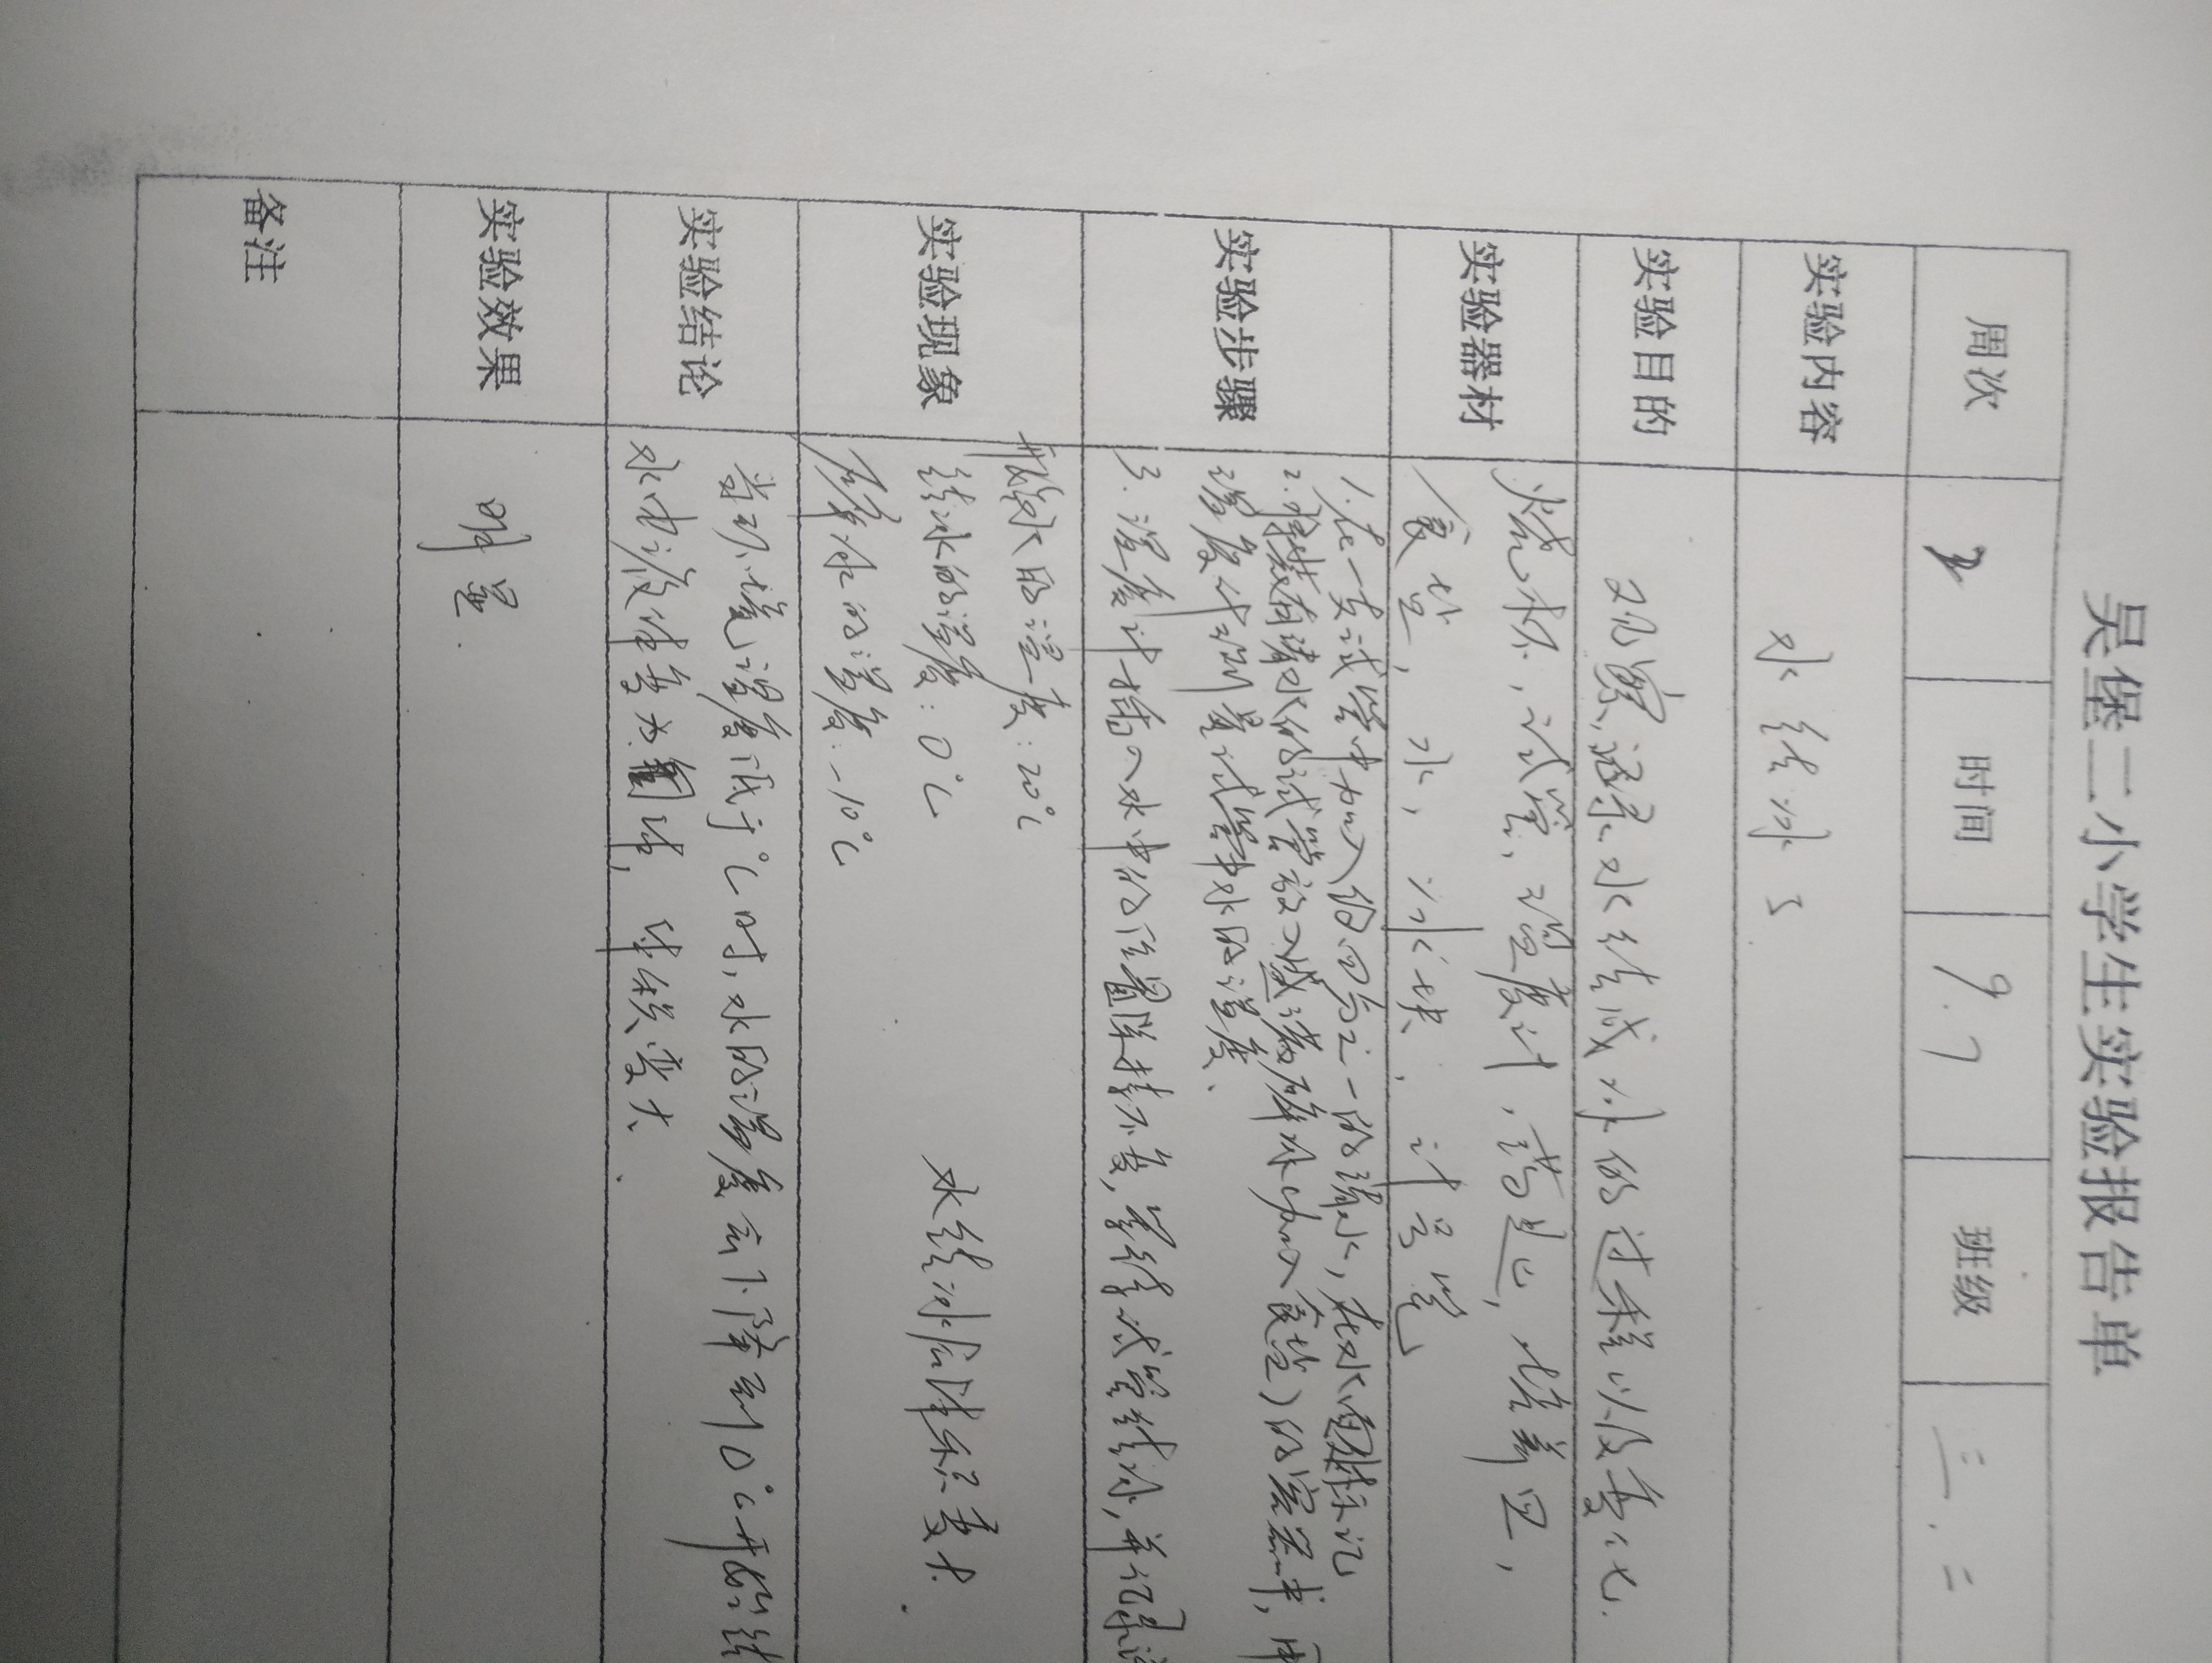 吴堡二小学生实验报告单
周次 2 时间 9.7 班级 三.二
实验内容 水结冰了
实验目的 观察、记录水结成冰的过程以及变化.
实验器材 烧杯, 试管, 温度计, 搅拌
食盐, 水, 冰块, 记号笔
实验步骤 1.在一支试管中加入约四分之一的清水, 在水面处标记
2.将装有清水的试管放入盛满碎冰(加入食盐)的容器中, 用
温度计测量试管中水的温度、
3.温度计插入水中的位置保持不变, 等待试管结冰, 并记录
实验现象 开始水的温度: 20℃
结冰的温度: 0℃
碎冰的温度: -10℃
水结冰后体积变大.
实验结论 当环境温度低于℃时, 水的温度会下降到0℃开始结
水由液体变为固体, 体积变大、
实验效果 明显.
备注